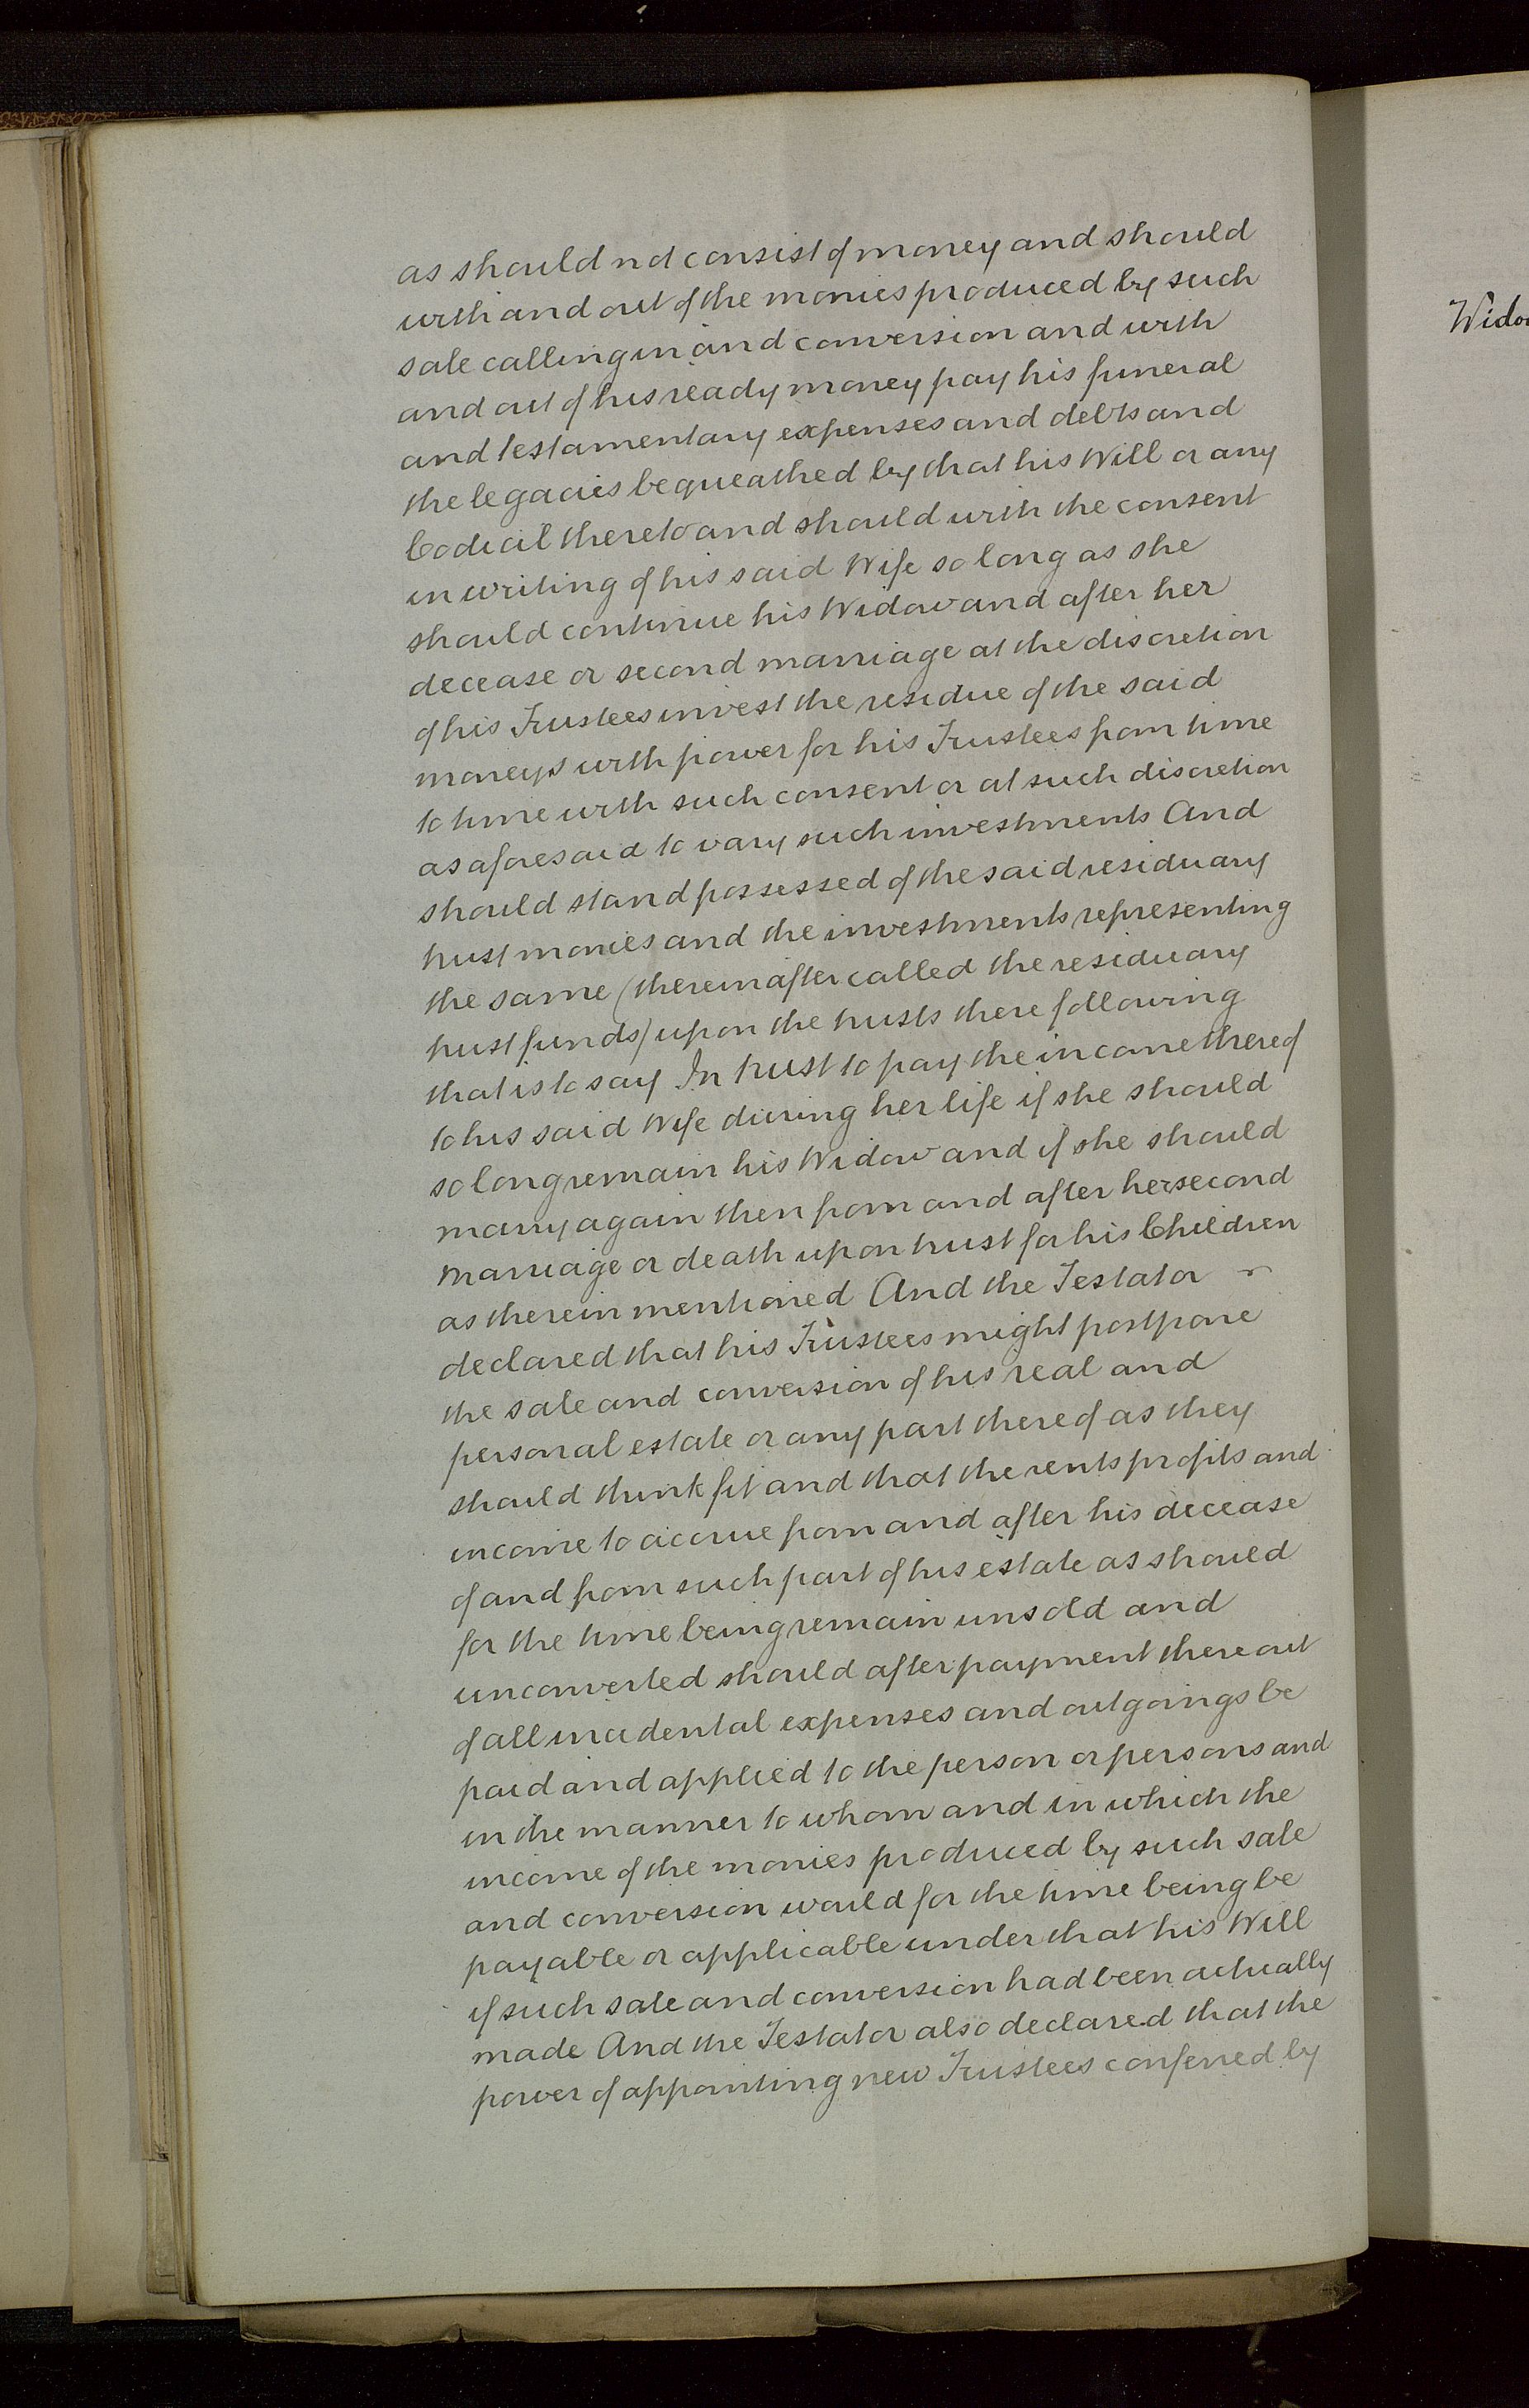 as should not consist of money and should
with and out of the monies produced by such
sale calling in and conversion and with
and out of his ready money pay his funeral
and testamentary expenses and debts and
the legacies bequeathed by that his Will or any
Codicil thereto and should with the consent
in writing of his said Wife so long as she
should continue his Widow and after her
decease or second marriage at the discretion
of his Trustees invest the residue of the said
moneys with power for his Trustees from time
to time with such consent or at such discretion
as aforesaid to vary such investments And
should stand possessed of the said residuary
trust monies and the investments representing
the same (thereinafter called the residuary
trust funds) upon the trusts there following
that is to say In trust to pay the income thereof
to his said Wife during her life if she should
so long remain his Widow and if she should
marry again then from and after her second
marriage or death upon trust for his Children
as therein mentioned And the Testator
declared that his Trustees might postpone
the sale and conversion of his real and
personal estate or any part thereof as they
should think fit and that the rents profits and
income to accrue from and after his decease
of and from such part of his estate as should
for the time being remain unsold and
unconverted should after payment thereout
of all incidental expenses and outgoings be
paid and applied to the person or persons and
in the manner to whom and in which the
income of the monies produced by such sale
and conversion would for the time being be
payable or applicable under that his Will
if such sale and conversion had been actually
made And the Testator also declared that the
power of appointing new Trustees conferred by